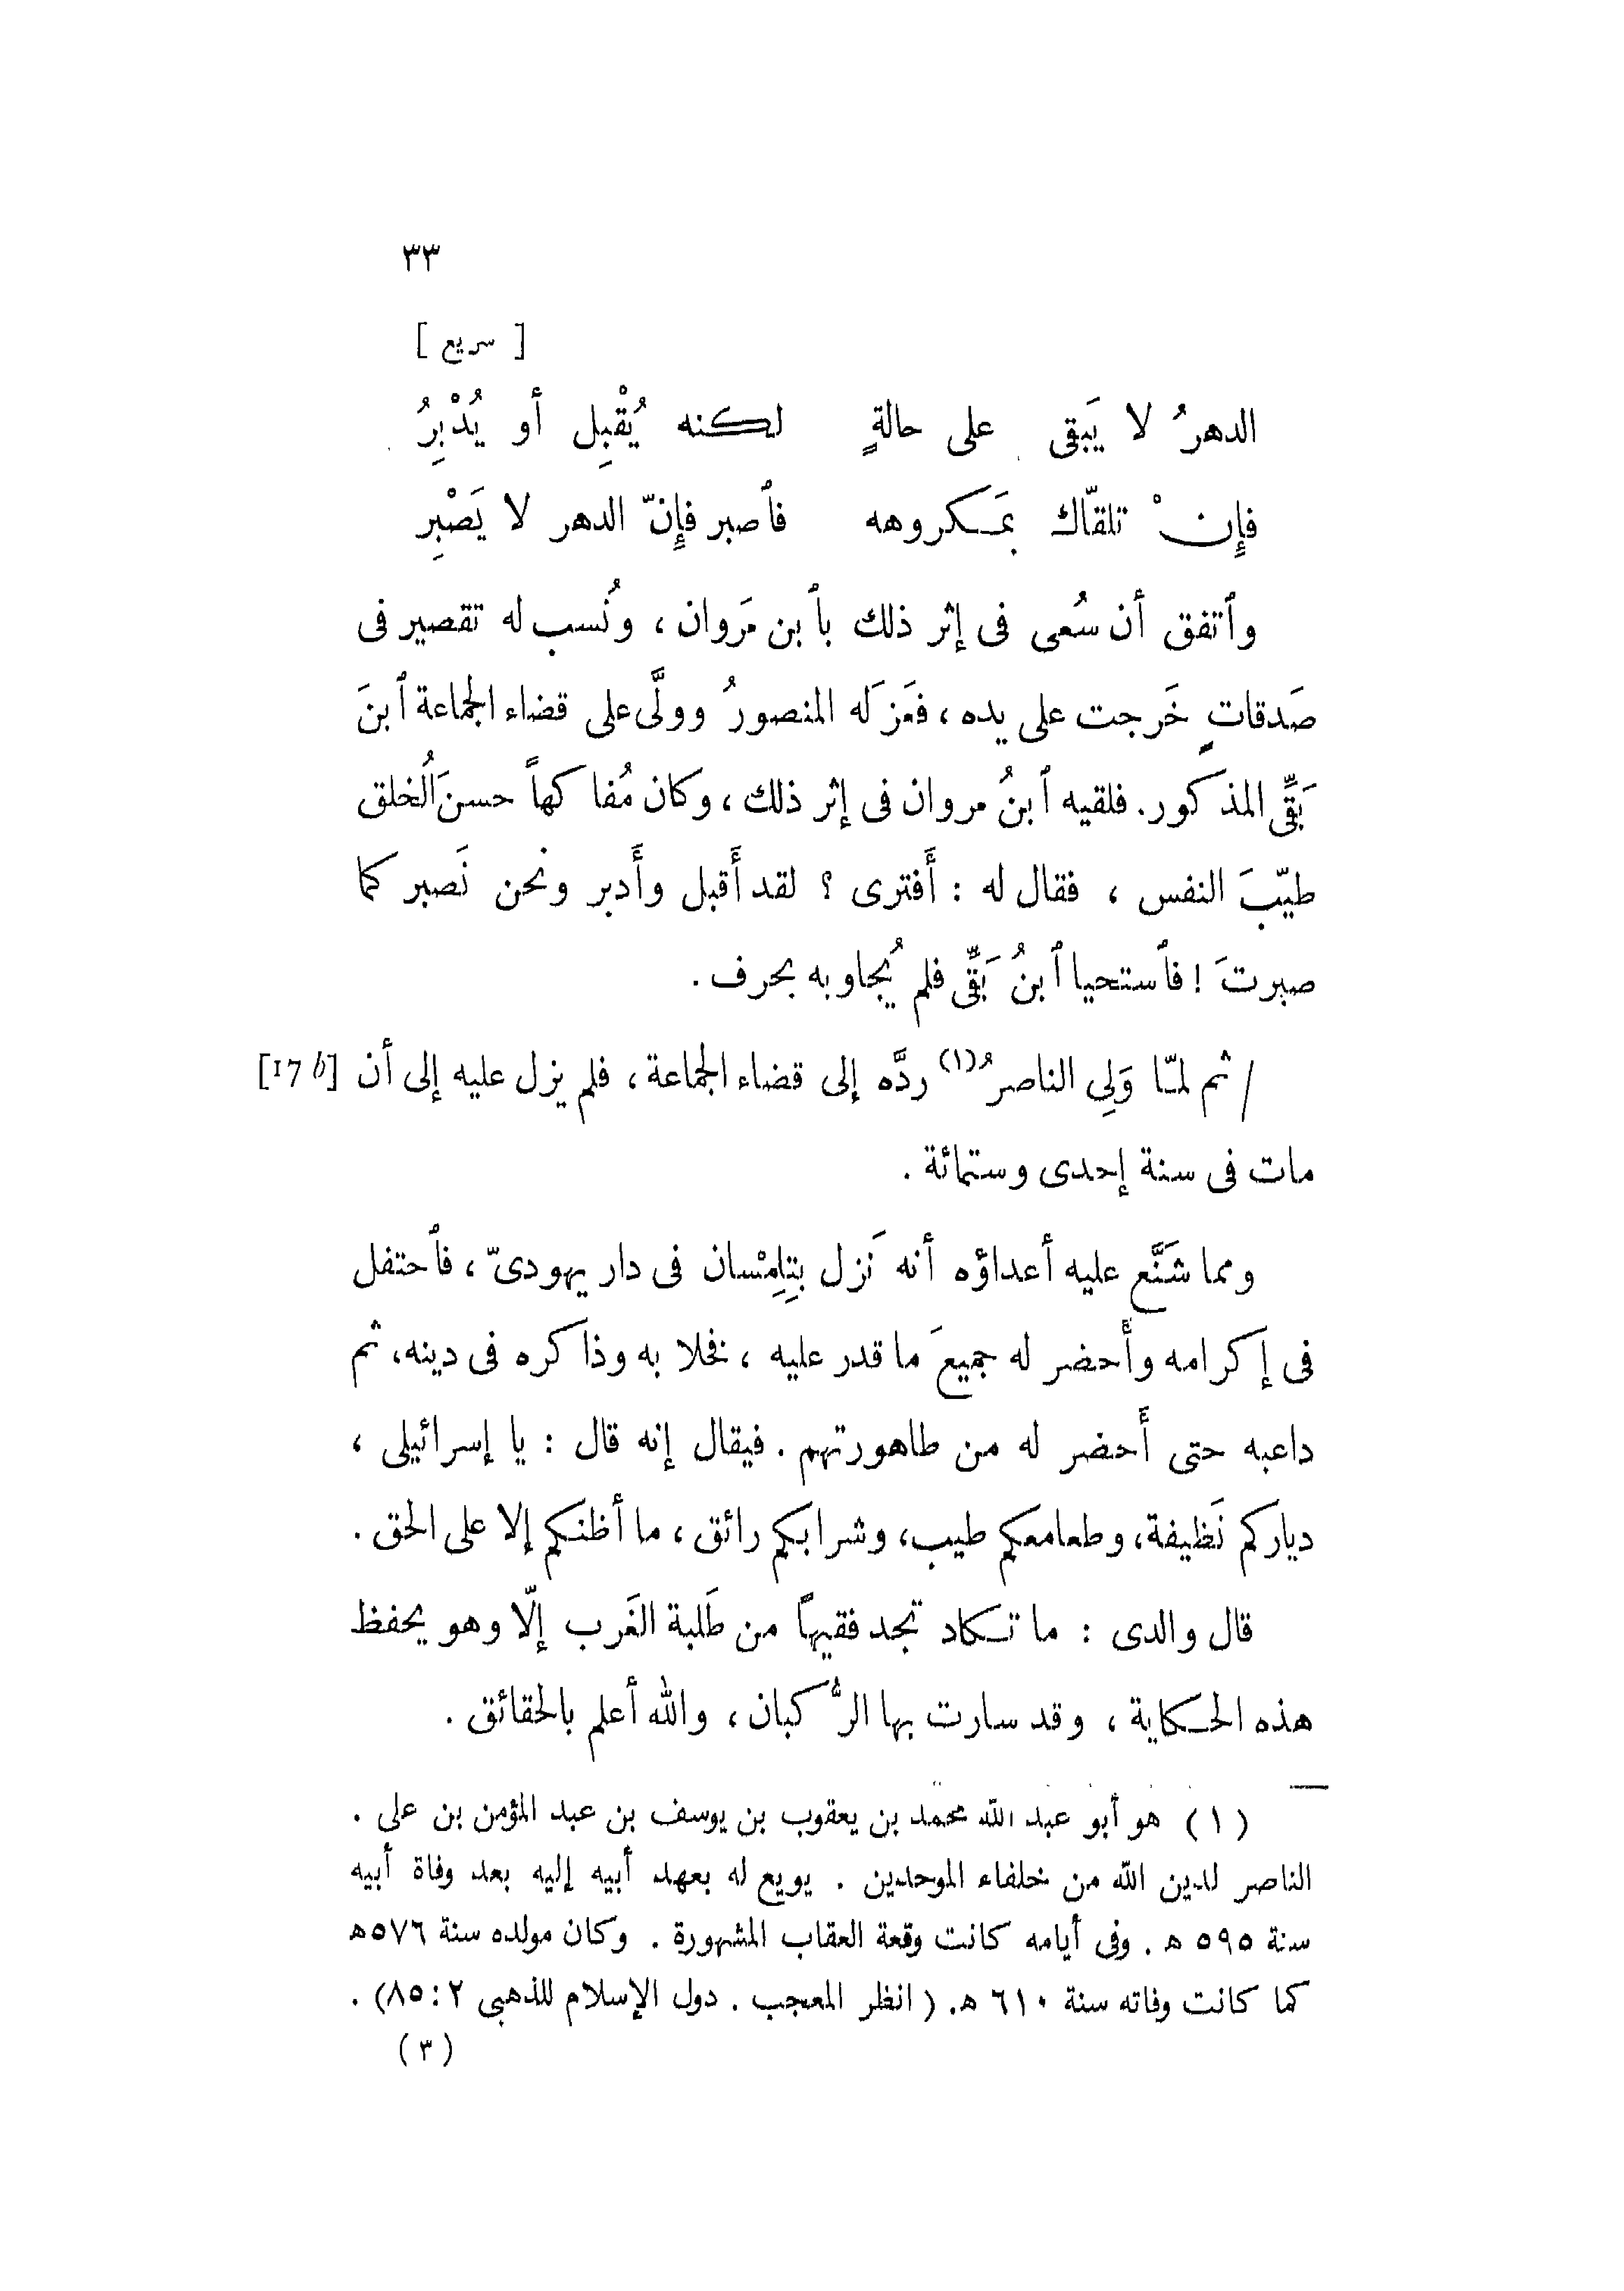 ٣٣
[ سريع ]
الدهرُ لا يَبقى على حالةٍ لكنه يُقْبِل أو يُدْبِرُ
فإِنْ تلقّاك بمَكروهه فٱصبر فإِنّ الدهر لا يَصْبِر
وٱتفق أن سُعى فى إثر ذلك بٱبن مَروان ، ونُسب له تقصير فى
صَدقاتٍ خَرجت على يده ، فعَزَله المنصورُ وولَّى على قضاء الجماعة ٱبنَ
بَقِّى المذكور. فلقيه ٱبنُ مروان فى إثر ذلك ، وكان مُفاكهاً حسنَ الُخلق
طيّبَ النفس ، فقال له : أَفترى ؟ لقد أَقبل وأَدبر ونحن نَصبر كما
صبرتَ ! فٱستحيا ٱبنُ بَقِّى فلم يُجاوبه بحرف .
/ ثم لمّا وَلِى الناصرُ (١) ردَّه إلى قضاء الجماعة ، فلم يزل عليه إلى أن [17 b]
مات فى سنة إحدى وستمائة .
ومما شَنَّع عليه أعداؤه أنه نَزل بتِلِمْسان فى دار يهودىّ ، فٱحتفل
فى إكرامه وأَحضر له جميعَ ما قدر عليه ، فخلا به وذاكره فى دينه، ثم
داعبه حتى أَحضر له من طاهورتهم . فيقال إنه قال : يا إسرائيلى ،
دياركم نَظيفة، وطعامعكم طيب، وشرابكم رائق ، ما أظنكم إلا على الحق .
قال والدى : ما تكاد تجد فقيهاً من طَلبة الغَرب إلّا وهو يحفظ
هذه الحكاية ، وقد سارت بها الرُّكبان ، والله أعلم بالحقائق .
(١) هو أبو عبد الله محمد بن يعقوب بن يوسف بن عبد المؤمن بن على .
الناصر لدين الله من خلفاء الموحدين . يويع له بعهد أبيه إليه بعد وفاة أبيه
سنة ٥٩٥ ه . وفى أيامه كانت وقعة العقاب المشهورة . وكان مولده سنة ٥٧٦ه
كما كانت وفاته سنة ٦١٠ ه. ( انظر المعجب . دول الإسلام للذهبى ٢ : ٨٥) .
(٣)